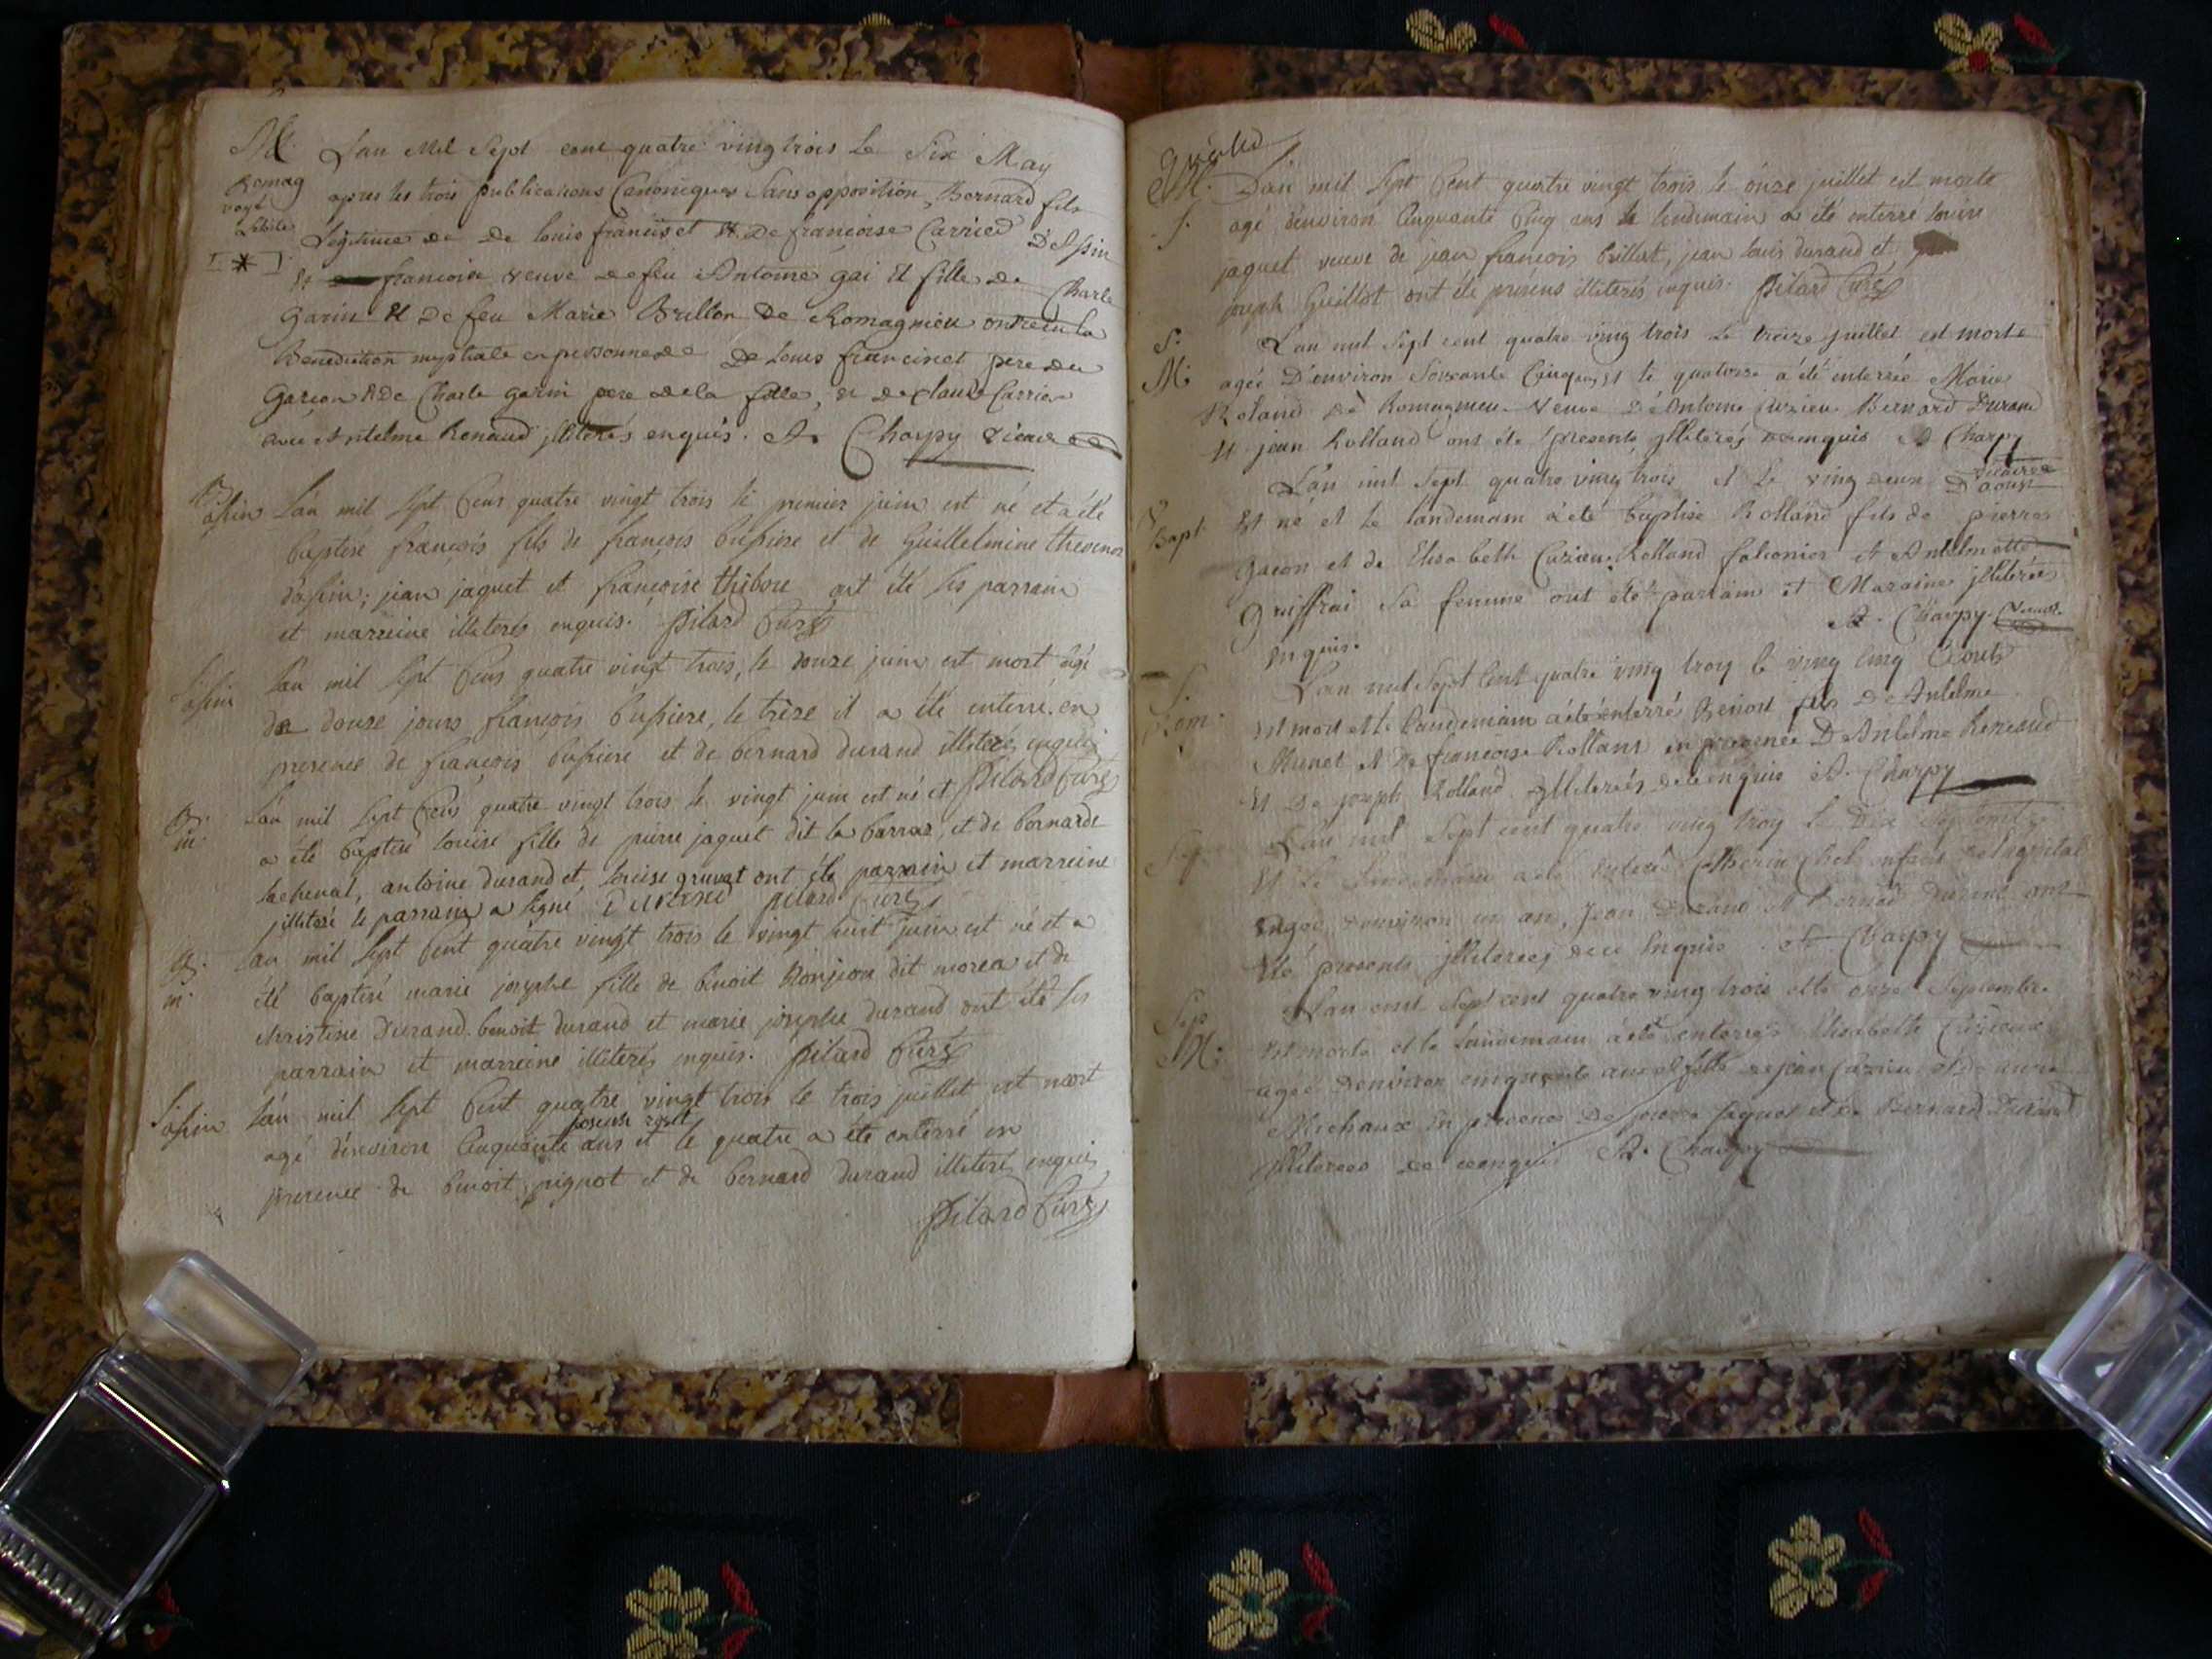 M.
L'an Mil Sept cent quatre vingtrois Le Six May
Romag
apres les trois publications Canoniques Sans opposition, Bernard fils
Legitime de De louis francis et De françoise Carrier D'Assin
[*]
et francoise veuve de feu Antoine gai et fille de Charle
Garin et De feu Marie Brillon De Romagnieu ont recu la
Benediction nuptiale en personne de De Louis francinet pere du
Garcon et de Charle Garin pere de la fille, et de claude Carrier
avec Antelme Renaud jlliterés enquis. A. Charpy vicaire
B.
assin
L'an mil sept Cens quatre vingt trois le premier juin est né et a été
baptisé françois fils de françois bussiere et de Guillelmine thevenon
d'assin; jean jaquet et françoise thibou ont été les parrain
et marreine illiterés enquis. Pilard Curé
S.
assin
L'an mil sept Cens quatre vingt trois, le douze juin est mort âgé
de douse jours françois bussiere, le trèze il a été enterré, en
presence de françois bussiere et de bernard durand illiterés enquis
Pilard Curé
B.
m.
L'an mil sept Cens quatre vingt trois le vingt juin est né et
a été baptisé louise fille de pierre jaquet dit la barraz, et de bernarde
lacheval, antoine durand et louise gruvat ont été parrain et marreine
jlliteré le parrain a signé Durand Pilard Curé
B.
m.
L'an mil sept Cent quatre vingt trois le vingt huit juin est né et a
été baptisé marie josephe fille de benoit Bonjean dit morea et de
christine Durand. benoit durand et marie josephe durand ont été les
parrain et marreine illiterés enquis. Pilard Curé
S.
assin
L'an mil sept Cent quatre vingt trois le trois juillet est mort
agé d'environ Cinquante ans et le quatre a été enterré en
presence de benoit pignot et de bernard durand illiterés enquis
Pilard Curé
M.
S.
L'an mil sept Cent quatre vingt trois le onze juillet est morte
agé d'environ Cinquante Cinq ans le lendemain a été enterré louise
jaquet veuve de jean françois brillat, jean louis durand et
joseph Guillot ont été présens illiterés enquis. Pilard Curé
S.
M:
L'an mil Sept cent quatre ving trois Le treize juillet est morte
agée D'environ Soixante Cinq ans et le quatorse a été enterrée Marie
Roland de Romagnieu Veuve D'Antoine Cuzieu Bernard Durand
et jean Rolland ont été presents jlliterés enquis A Charpy
vicaire
Bapt.
L'an mil Sept quatre ving trois et Le ving deux D'aoust
Est né et le landemain a été baptisé Rolland fils de pierre
Gacon et de Elisabeth Cuzieu. Rolland falconier et Antelmette
Greiffrai sa femme ont été parrain et Maraine jlliterés
Inquis. A. Charpy vicaire
S.
Rom.
L'an mil Sept Cent quatre ving troy le ving cinq D'aout
Est mort et le landemain a été enterré Benoit fils De Antelme
Munet et De francoise Rolland en presence D'Antelme Renaud
et De joseph Rolland jlliterés de ce enquis A. Charpy
L'an mil Sept cent quatre ving troy Le Dix Septembre
et Le landemain a été enterré Catherin enfant de l'hopital
Agée d'environ un an, Jean Durand et Bernad Durand ont
Eté presents jlliterées de ce Inquis A. Charpy
Sep
M:
L'an mil Sept cent quatre ving trois et le onze Septembre
Est morte et le landemain a été enterrés Elisabeth Cuzieu
agée D'environ cinquante ans et fille de jean Cuzieu et De
Michaux en presence De pierre jaquet et De Bernard Durand
jlliterees de ce enquis A. Charpy